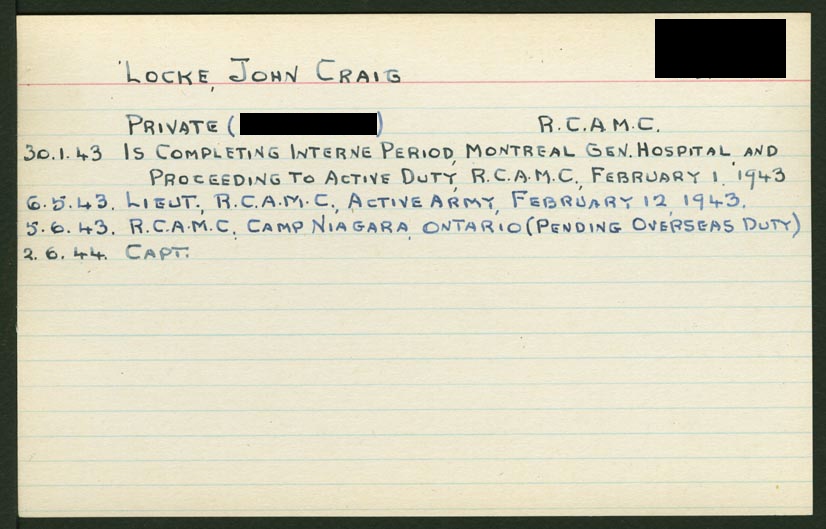 LOCKE, JOHN CRAIG
PRIVATE ( ) R.C.A.M.C.
30.1.43 IS COMPLETING INTERNE PERIOD, MONTREAL GEN. HOSPITAL, AND
PROCEEDING TO ACTIVE DUTY, R.C.A.M.C., FEBRUARY 1, 1943
6.5.43. LIEUT., R.C.A.M.C., ACTIVE ARMY, FEBRUARY 12, 1943.
5.6.43. R.C.A.M.C., CAMP NIAGARA, ONTARIO (PENDING OVERSEAS DUTY)
2.6.44. CAPT.